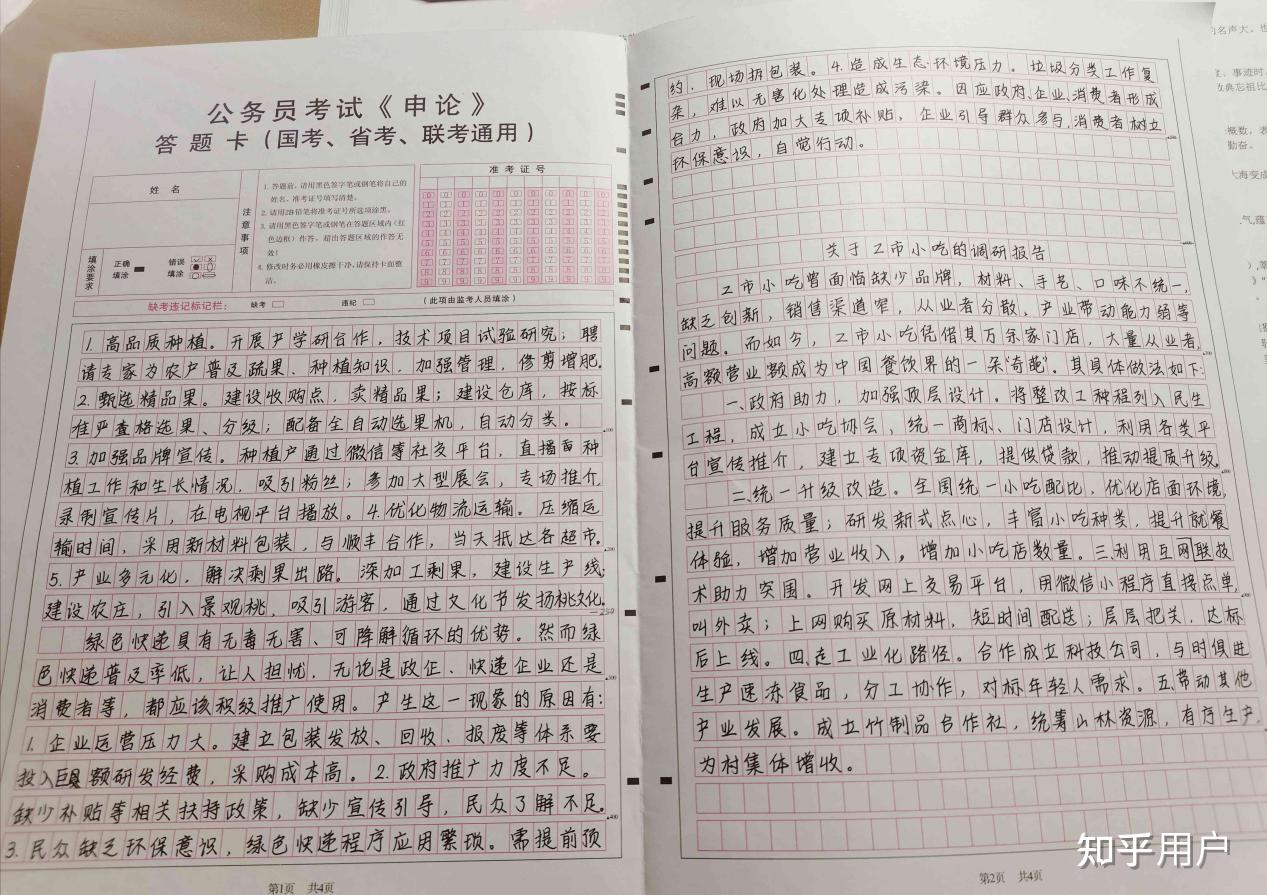 公务员考试《申论》
答题卡（国考、省考、联考通用）
姓名
准考证号
注意事项
1. 答题前，请用黑色签字笔或钢笔将自己的
姓名、准考证号填写清楚。
2. 请用2B铅笔将准考证号所选项涂黑。
3. 请用黑色签字笔或钢笔在答题区域内（红
色边框）作答，超出答题区域的作答无
效！
4. 修改时务必用橡皮擦干净，请保持卡面整
洁。
填涂要求
正确填涂
错误填涂
缺考违记标记栏：
缺考
违纪
（此项由监考人员填涂）
1. 高品质种植。开展产学研合作，技术项目试验研究；聘
请专家为农户普及蔬果、种植知识，加强管理，修剪增肥.
2. 甄选精品果。建设收购点，卖精品果；建设仓库，按标
准严查格选果、分级；配备全自动选果机，自动分类。
3. 加强品牌宣传。种植户通过微信等社交平台，直播种
植工作和生长情况，吸引粉丝；参加大型展会，专场推介，
录制宣传片，在电视平台播放。4. 优化物流运输。压缩运
输时间，采用新材料包装，与顺丰合作，当天抵达各超市.
5. 产业多元化，解决剩果出路。深加工剩果，建设生产线;
建设农庄，引入景观桃，吸引游客，通过文化节发扬桃文化.
259
绿色快递具有无毒无害、可降解循环的优势。然而绿
色快递普及率低，让人担忧，无论是政企、快递企业还是
消费者等，都应该积极推广使用。产生这一现象的原因有:
1. 企业运营压力大。建立包装发放、回收、报废等体系要
投入巨额研发经费，采购成本高。2. 政府推广力度不足。
缺少补贴等相关扶持政策，缺少宣传引导，民众了解不足.
3. 民众缺乏环保意识，绿色快递程序应用繁琐。需提前预
第1页 共4页
约，现场拆包装。4. 造成生态环境压力。垃圾分类工作复
杂，难以无害化处理造成污染。因应政府、企业、消费者形成
合力，政府加大专项补贴，企业引导群众参与，消费者树立
环保意识，自觉行动。
关于Z市小吃的调研报告
Z市小吃曾面临缺少品牌，材料、手艺、口味不统一，
缺乏创新，销售渠道窄，从业者分散、产业带动能力弱等
问题。而如今，Z市小吃凭借其万余家门店，大量从业者，
高额营业额成为中国餐饮界的一朵“奇葩”。其具体做法如下:
一、政府助力，加强顶层设计。将整改工种程列入民生
工程，成立小吃协会，统一商标、门店设计，利用各类平
台宣传推介，建立专项资金库，提供贷款，推动提质升级.
二、统一升级改造。全国统一小吃配比，优化店面环境，
提升服务质量；研发新式点心，丰富小吃种类，提升就餐
体验，增加营业收入，增加小吃店数量。三、利用互网联技
术助力突围。开发网上交易平台，用微信小程序直接点单，
叫外卖；上网购买原材料，短时间配送；层层把关，达标
后上线。四、走工业化路径。合作成立科技公司，与时俱进
生产速冻食品，分工协作，对标年轻人需求。五、带动其他
产业发展。成立竹制品合作社，统筹山林资源，有序生产，
为村集体增收。
第2页 共4页
知乎用户